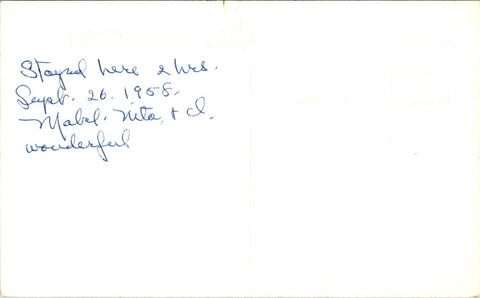 Stayed here 2 hrs.
Sept. 26, 1958.
Mabel, Nita, & I.
wonderful